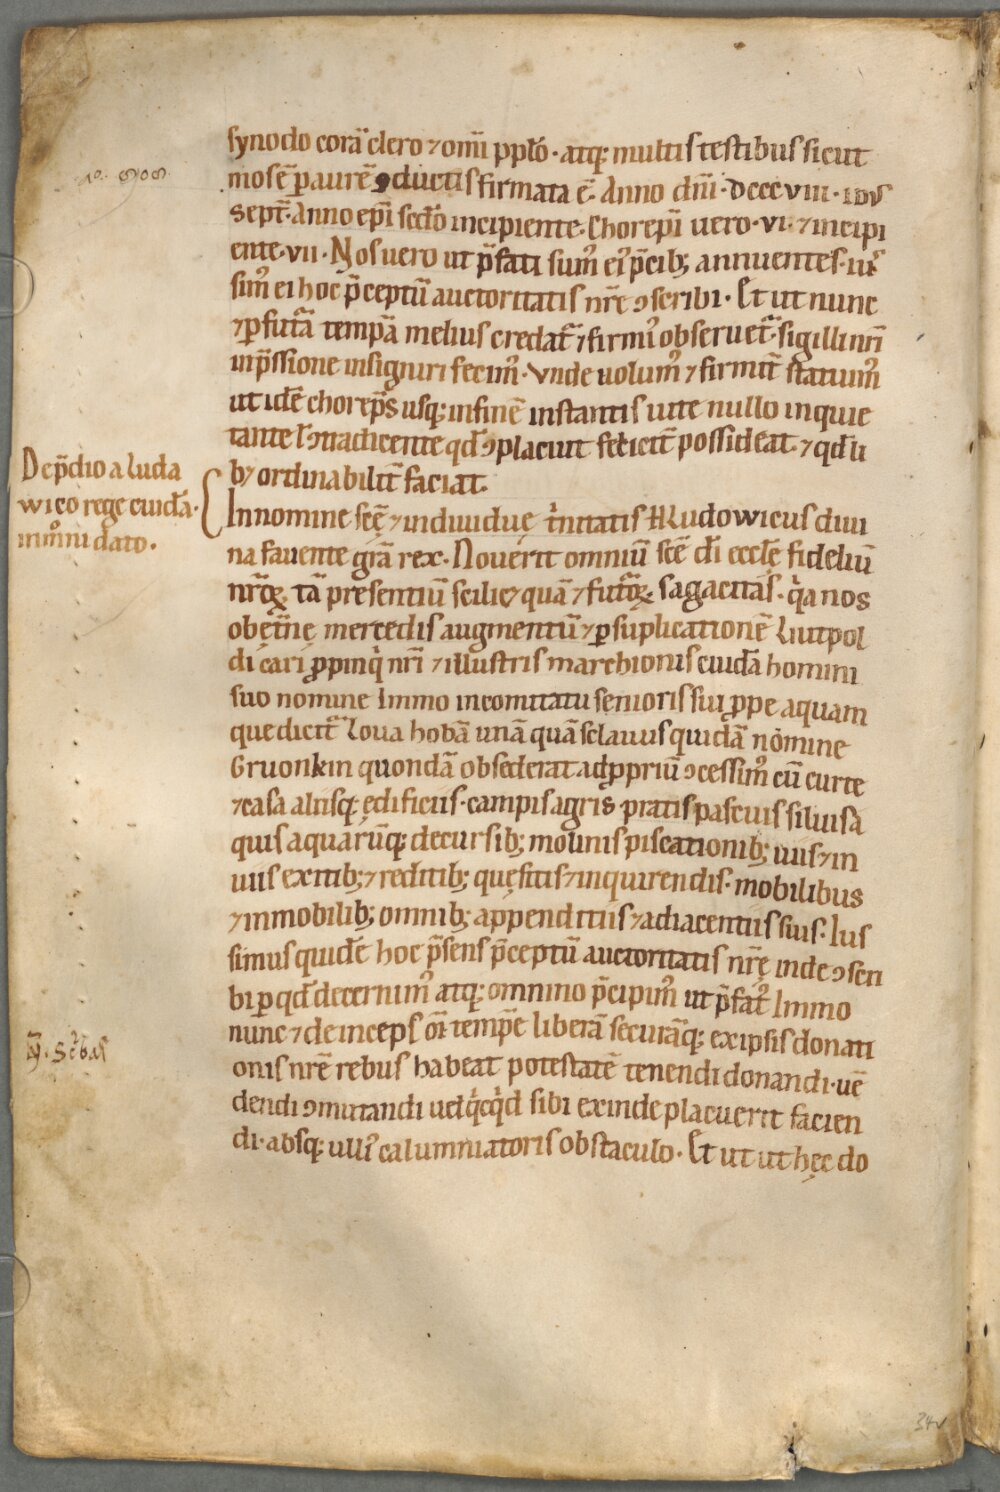 synodo corā clero ⁊ om̄i pplo · atq; multis testibus sicut
Ao. 908.
mos ē p aurē ꝯductis firmata ē. Anno dn̄i · DCCCC VIII · IDV
sept̄. Anno ep̄i scdo incipiente. Chorep̄i uero · VI · ⁊ incipi
ente · VII · Nos uero ut p̄fati sum᷒ ei᷒ p̄cib; annuentes · ius
sim᷒ ei hoc p̄ceptū auctoritatis nr̄e ꝯscribi · Et ut nunc
⁊ ꝑ futa tempa melius credat̄ ⁊ firmi᷒ obseruet̄ · sigilli nr̄i
inp̄ssione insigniri fecim᷒ · Vnde uolum᷒ ⁊ firmit̄ statuim᷒
ut idē chorep̄s usq; in finē instantis uite nullo inquie
tante ł ꝯtradicente qd ꝯplacuit feliciт̄ possideat · ⁊ qd li
b; ordinabilit̄ faciat.
De p̄dio a luda
wico rege cuidā
immoni dato.
In nomine scę ⁊ indiuiduę t'nitatis Hludowicus diui
na fauente gr̄a rex · Nouerit omniū scē dī eccle fidelium
nr̄oꝝ · tā presentiū scilic; quā ⁊ futoꝝ · sagacitas · q'a nos
ob ęt̄nę mercedis augmentū ⁊ ꝑ suplicationē Liutpol
di cari ꝓpinq' nr̄i ⁊ illustris marchionis cuidā homini
suo nomine Immo in comitatu senioris sui ꝓpe aquam
que dicit̄ Loua hobā unā quā sclauus quidā nomine
Gruonkin quondā obsederat ad ꝓpriū ꝯcessim᷒ cū curte
⁊ casa aliisq; ędificiis · campis agris · pratis pascuis siluis a
quis aquarūq; decursib; molinis piscationib; uiis ⁊ in
uiis exitib; ⁊ reditib; quęsitis ⁊ inquirendis · mobilibus
⁊ inmobilib; omnib; appenditiis ⁊ adiacentiis suis · Ius
simus quidē hoc p̄sens p̄ceptū auctoritatis nr̄ę inde ꝯscri
bi ꝑ qd decernim᷒ atq; omnino p̄cipim᷒ ut p̄fat᷒ Immo
nunc ⁊ deinceps om̄i tempe liberā securāq; ex ipsis donati
onis nr̄e rebus habeat potestatē tenendi donandi · uē
dendi ꝯmutandi uel q'cq'd sibi exinde placuerit facien
di · absq; ulli᷒ calumniatoris obstaculo · Et ut ut hęc do
34v